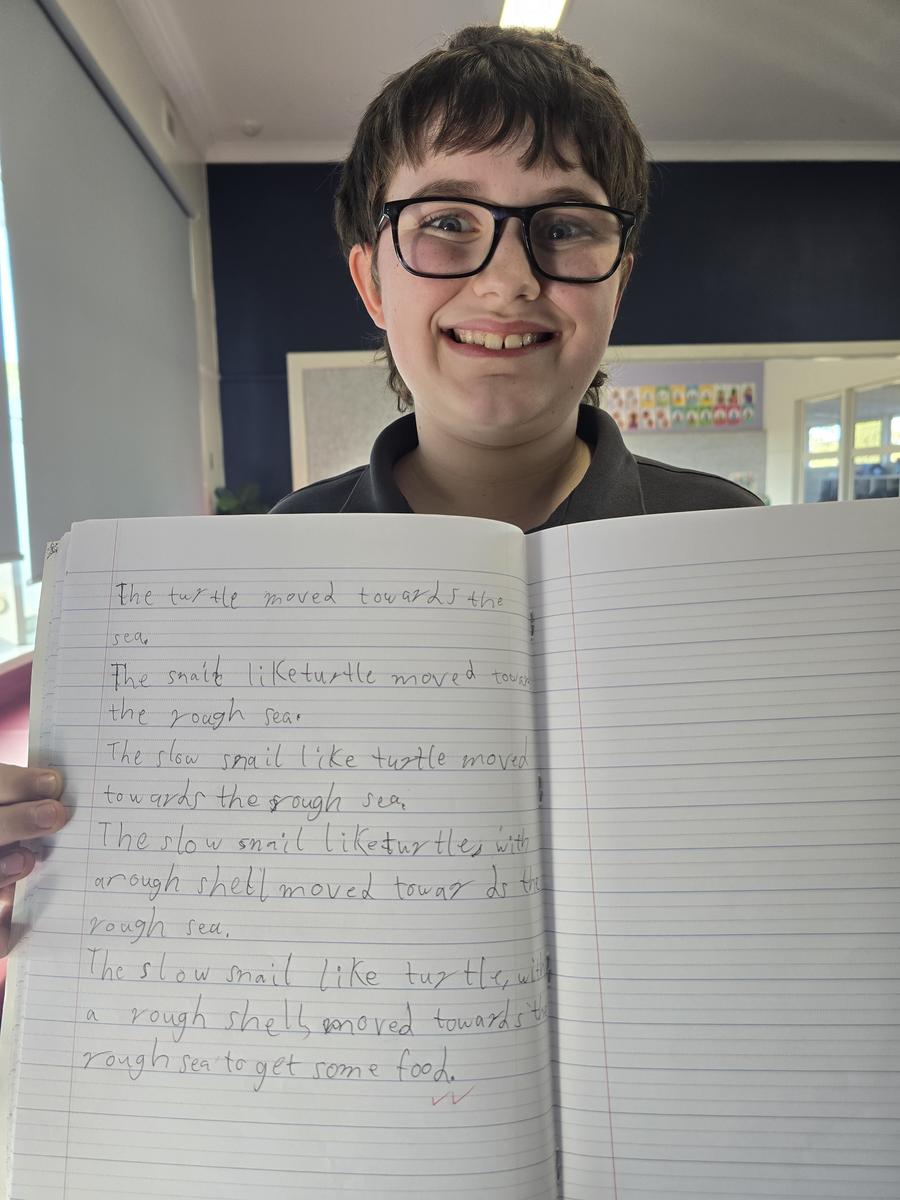 The turtle moved towards the
sea.
The snail liketurtle moved towar
the rough sea.
The slow snail like turtle moved
towards the rough sea.
The slow snail liketurtle, with
arough shell moved towar ds the
rough sea.
The slow snail like turtle, with
a rough shell, moved towards the
rough sea to get some food.